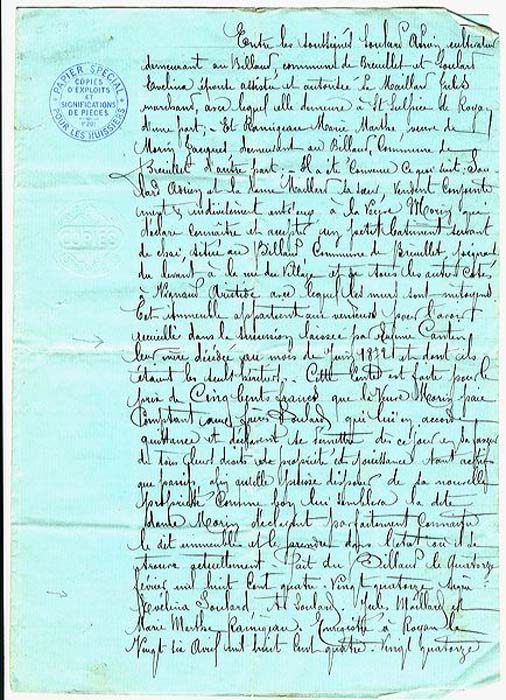 PAPIER SPÉCIAL
COPIES
D'EXPLOITS ET
SIGNIFICATIONS
DE PIÈCES
POUR LES HUISSIERS
COPIES
Entre les soussignés Soulard cultivateur
demeurant au Billaud, commune de Breuillet et Soulard
Evelina épouse assistée et autorisée de Maillard Jules
marchand, avec lequel elle demeure à St Sulpice de Royan
d'une part, - Et Ramigeau Marie Marthe, veuve de
Morin Jacques demeurant au Billaud, Commune de
Breuillet d'autre part, - Il a été Convenu Ce qui suit, Sou
lard et la dame Maillard sa sœur, vendent Conjointe
ment & indivisément entr'eux à la Veuve Morin qui
déclare Connaître et accepté un petit batiment servant
de chai, située au Billaud Commune de Breuillet, joignant
du levant à la rue du Village et de tous les autres Côtés,
à Vignaud Aristide avec lequel les murs sont mitoyens
Cet immeuble appartient aux vendeurs pour l'avoir
recueilli dans la succession laissée par Cantin
leur mère décédée au mois de Juin et dont ils
étaient les seuls héritiers. - Cette Vente est faite pour le
prix de Cinq Cents francs que la Veuve Morin paie
Comptant aux frères Soulard qui lui en accord
quittance et déclarent se démettre dès ce jour en sa faveur
de tous leurs droits de propriété et jouissance tant actifs
que passifs, afin qu'elle puisse disposer de sa nouvelle
propriété Comme bon lui semblera la dite
dame Morin déclarant parfaitement Connaître
le dit immeuble et le prendre dans l'état où il se
trouve actuellement - fait au Billaud le Quatorze
février mil huit Cent quatre-Vingt quatorze Signé
Evelina Soulard. A. Soulard. Jules Maillard et
Marie Marthe Ramigeau. Enregistré à Royan le
Vingt six Avril mil huit Cent quatre-Vingt quatorze